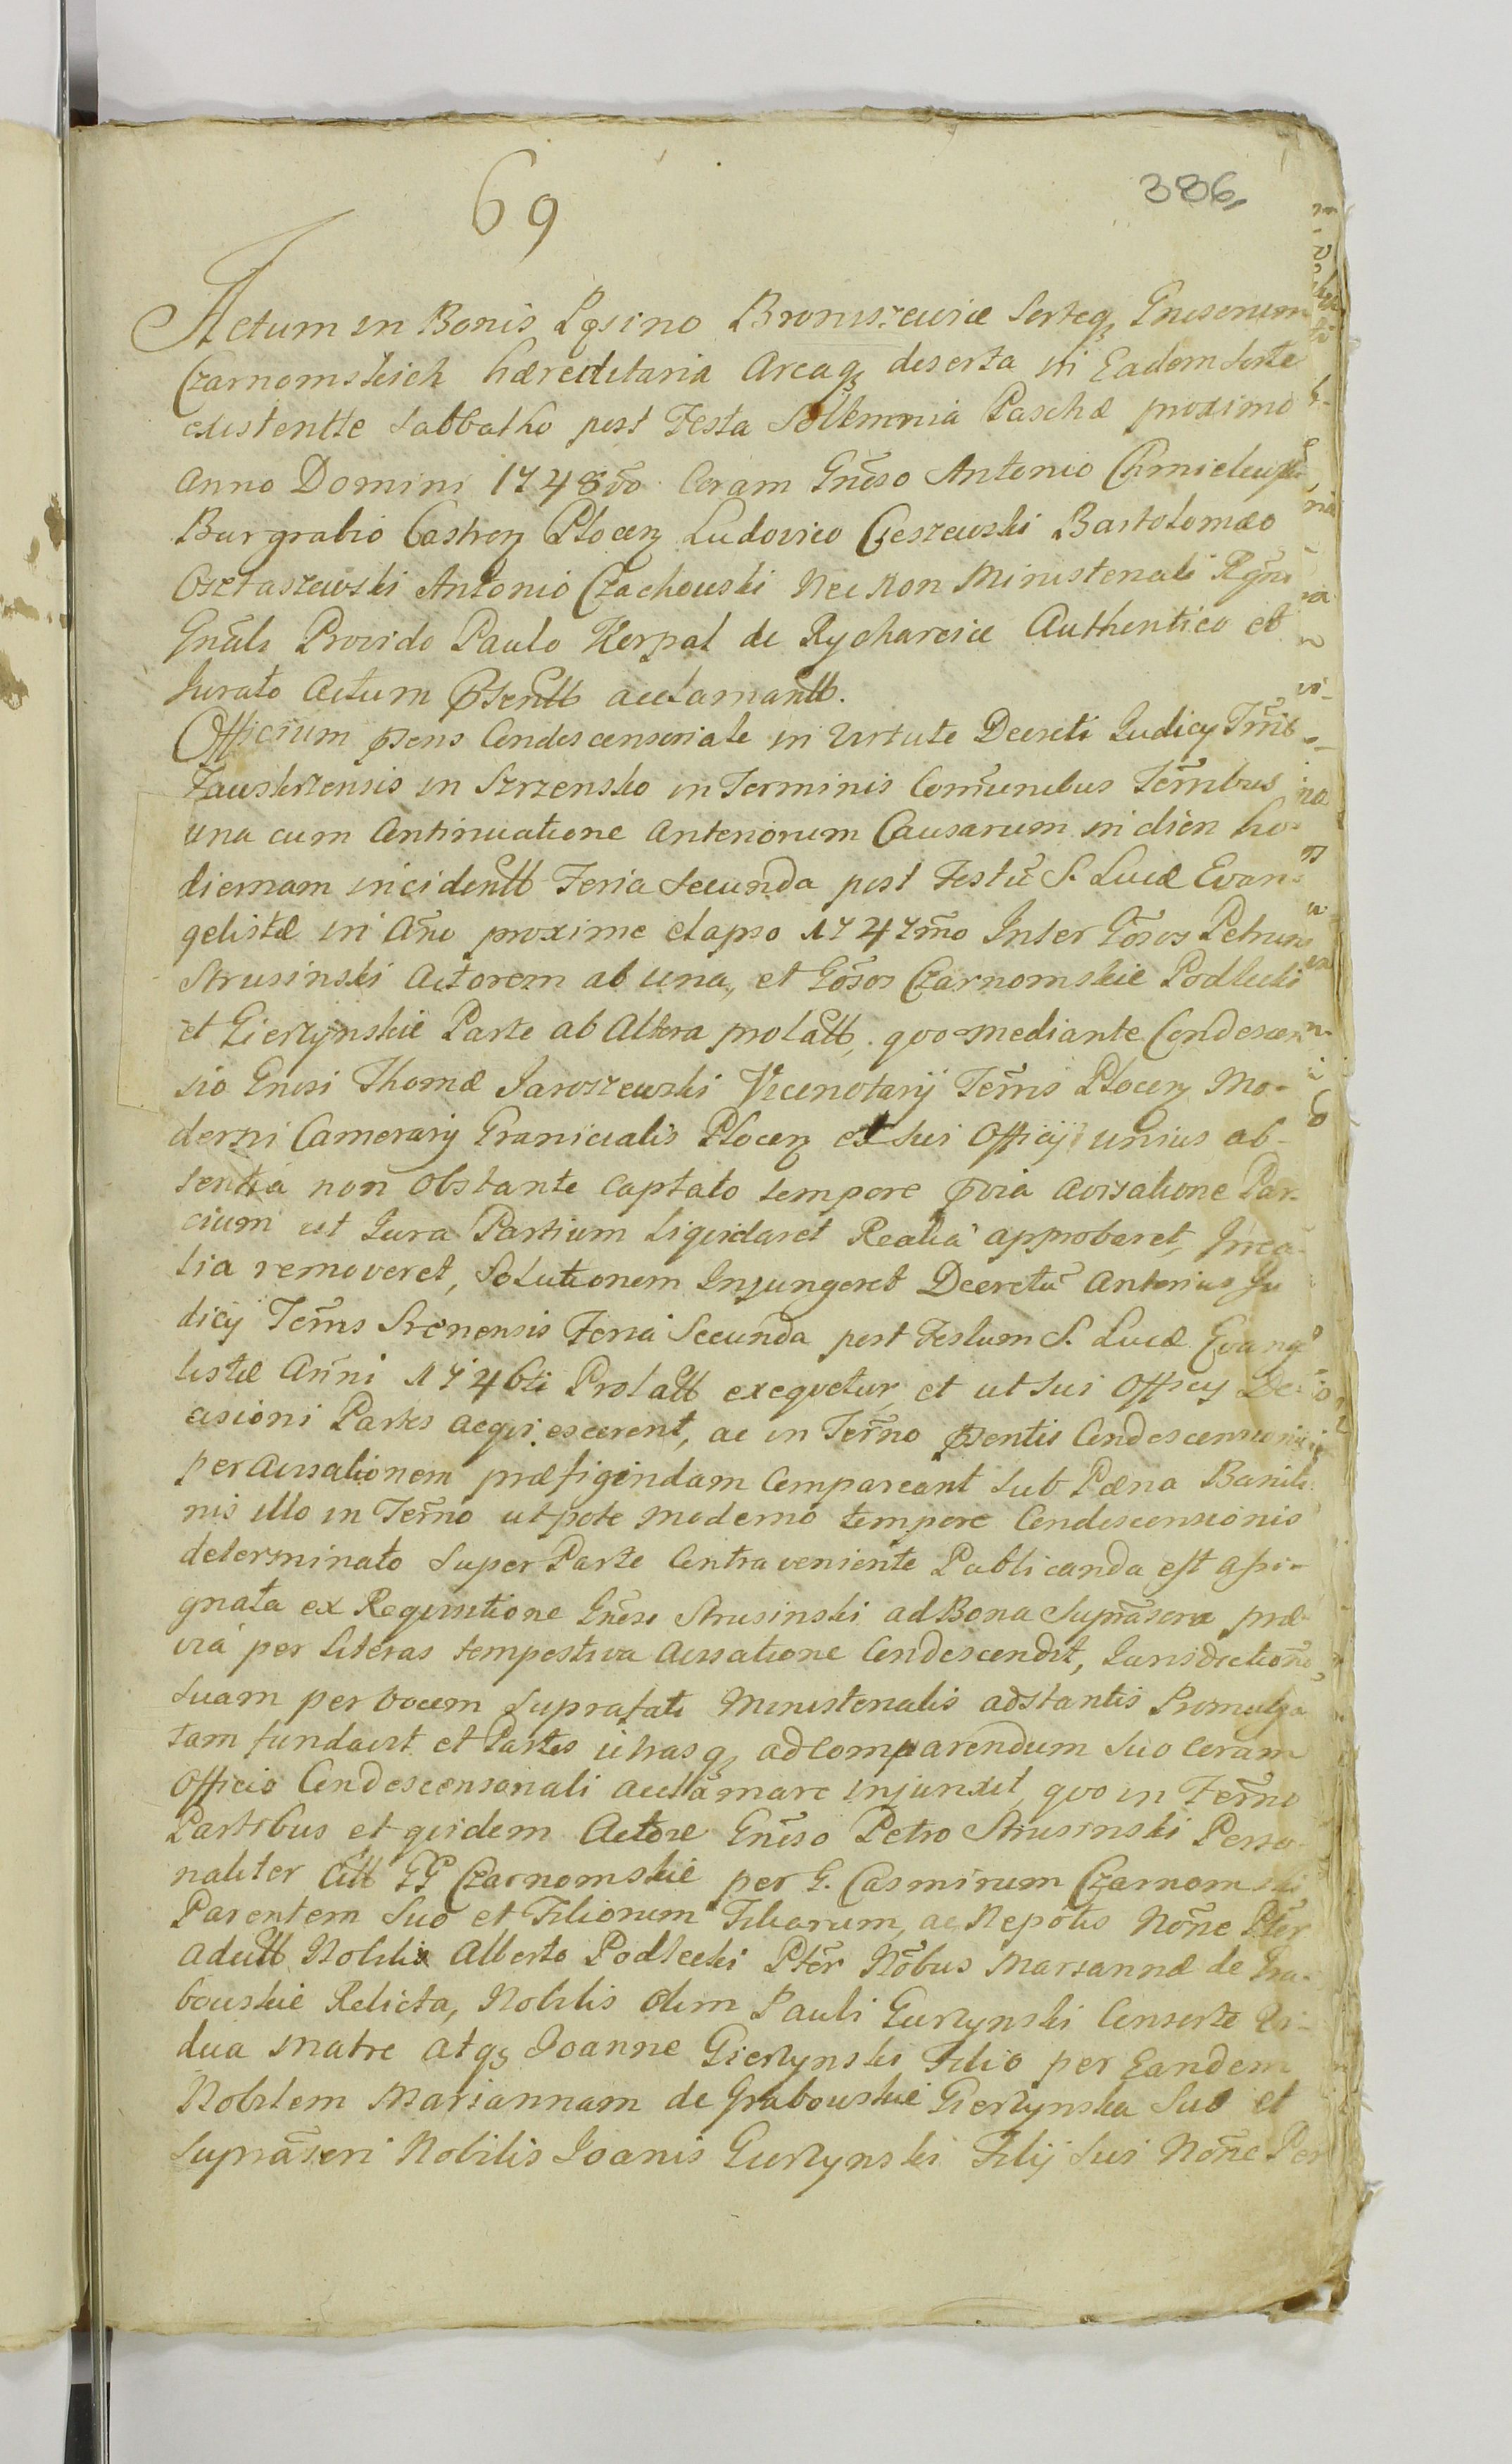 69
386
Actum in Bonis Lgsino Broniszewice Sorteq Gnosorum
Czarnomskich hæreditaria Areaq deserta in Eadem Sorte
existentte Sabbatho post Festa Sollemnia Paschæ proximo
Anno Domini 1748vo Coram Gnoso Antonio Chmielewski
Burgrabio Castren Plocen Ludovico Czeszewski Bartolomæo
Osztaszewski Antonio Czachowski Nec Non Ministeriali Regni
Gnãli Provido Paulo Kerpal de Rycharcice Authentico et
Jurato Actum Psentt acclamantt.
Officium psens Condescensoriale in Virtute Decreti Judicy Trris
Zawskrzensis in Szrzensko in Terminis Com̃unibus Terribus
una cum Continuatione Anteriorum Causarum in dien ho-
diernam incidentt Feria Secunda post Festũ S. Lucæ Evan-
gelistæ in Año proxime elapso 1747mo Inter Gosos Petrum
Strusinski Actorem ab una, et Gosos Czarnomskie Podlecki
et Gierzynskie Parte ab Altera prolatt, quo mediante Condescen
sio Gnosi Thomæ Jaroszewski Vicenotarij Terris Plocen Mo-
derni Camerarij Granicialis Plocen et sui Officij unius ab-
sentia non Obstante captato tempore pvia Avisatione Par-
cium ut Jura Partium liquidaret Realia approbaret, Irrea-
lia removeret, Solutionem Injungeret Decretũ Anterius Ju
dicij Terris Srenensis Feria Secunda post Festum S. Lucæ Evange
listæ Anni 1746ti Prolatt exequetur, et ut sui Officij De-
cisioni Partes acquiescerent, ac in Terno psentis Condescensionis
per avisationem præfigendam Compareant sub Pæna Banitio
nis illo in Terno utpote moderno tempore Condescensionis
determinato super Parte Contraveniente Publicanda est assi-
gnata ex Requisitione Gnosi Strusinski ad Bona Suprascra præ-
via per literas tempestiva Avisatione Condescendit, Jurisdictione
suam per vocem suprafati Ministerialis adstantis Promulga
tam fundavit et Partes utrasq ad comparendum suo coram
Officio Condescensoriali acclamare injunxit, quo in Terno
Partibus et quidem Actore Gnoso Petro Strusinski Perso-
naliter Citt GG Czarnomskie per G. Casmirum Czarnomski
Parentem Suo et Filiorum Filiarum, ac Nepotis Noñe Pter
Aditt Nobili Alberto Podlecki Pter Nobus Mariannæ de Gra-
bouskie Relicta, Nobilis Olim Pauli Gierzynski Consorte Vi-
dua Matre atq Joanne Gierzynski Filio per Eandem
Nobilem Mariannam de Grabouskie Gierzynska Suo et
Suprascri Nobilis Joanis Gierzynski Filij Sui Noñe Per